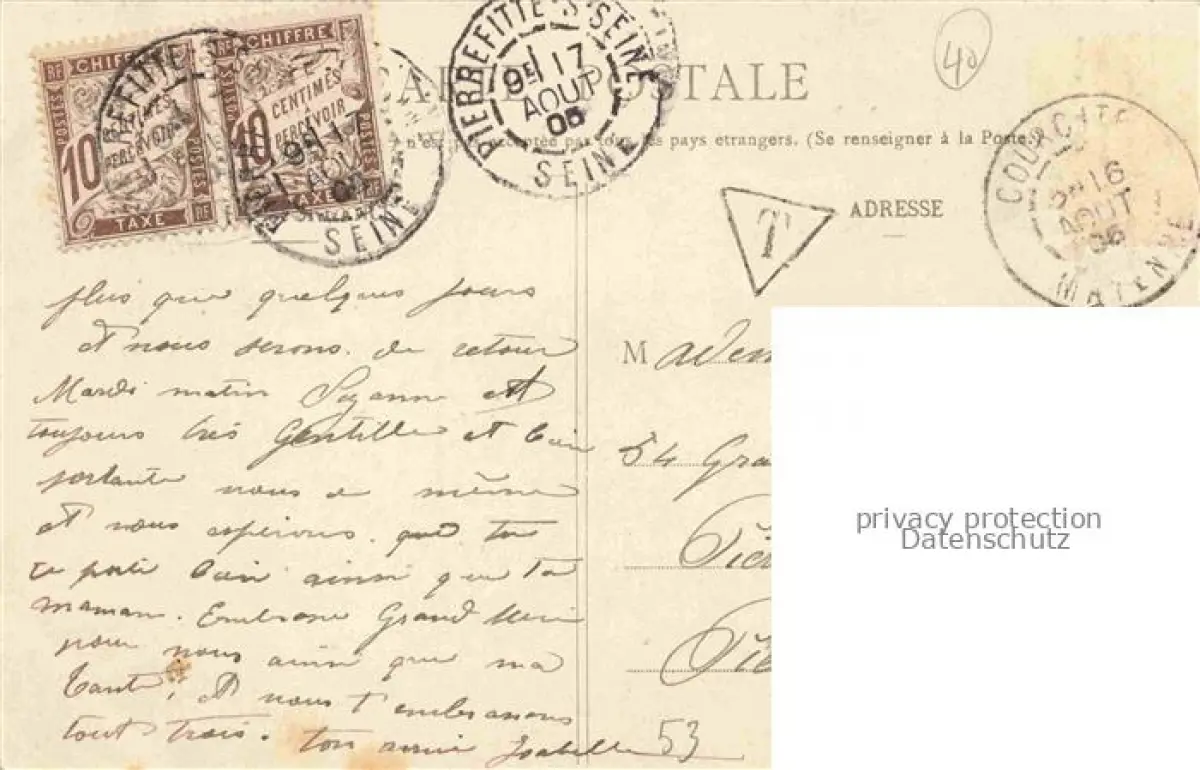 RF CHIFFRE RF CHIFFRE
POSTES 10 CENTIMES À PERCEVOIR POSTES TAXE RF
POSTES 10 CENTIMES À PERCEVOIR POSTES TAXE
PIERREFITTE-S-SEINE 9E 17 AOUT 06 SEINE
PIERREFITTE-S-SEINE 9E 17 AOUT 06 SEINE
40
CARTE POSTALE
n'est pas acceptée pas tous les pays etrangers. (Se renseigner à la Poste.)
COURCITE 16 AOUT 06 MAYENNE
T
ADRESSE
plus que quelques jours
et nous serons de retour
Mardi matin Suzanne est
toujours très Gentille et bien
portante nous de même
et nous espérons que tu
te porte bien ainsi que ta
maman. Embrasse Grand Mère
pour nous ainsi que ma
Tante, et nous t'embrassons
tout trois. ton amie Isabelle
53
Madem
54 Gra
Pie
Pie
privacy protection
Datenschutz